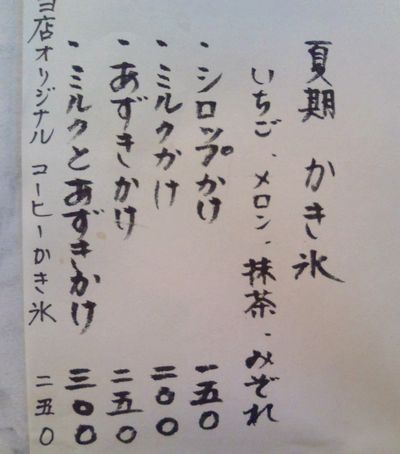 夏期 かき氷
いちご、メロン、抹茶、みぞれ
・シロップかけ 一五〇
・ミルクかけ 二〇〇
・あずきかけ 二五〇
・ミルクとあずきかけ 三〇〇
当店オリジナル コーヒーかき氷 二五〇